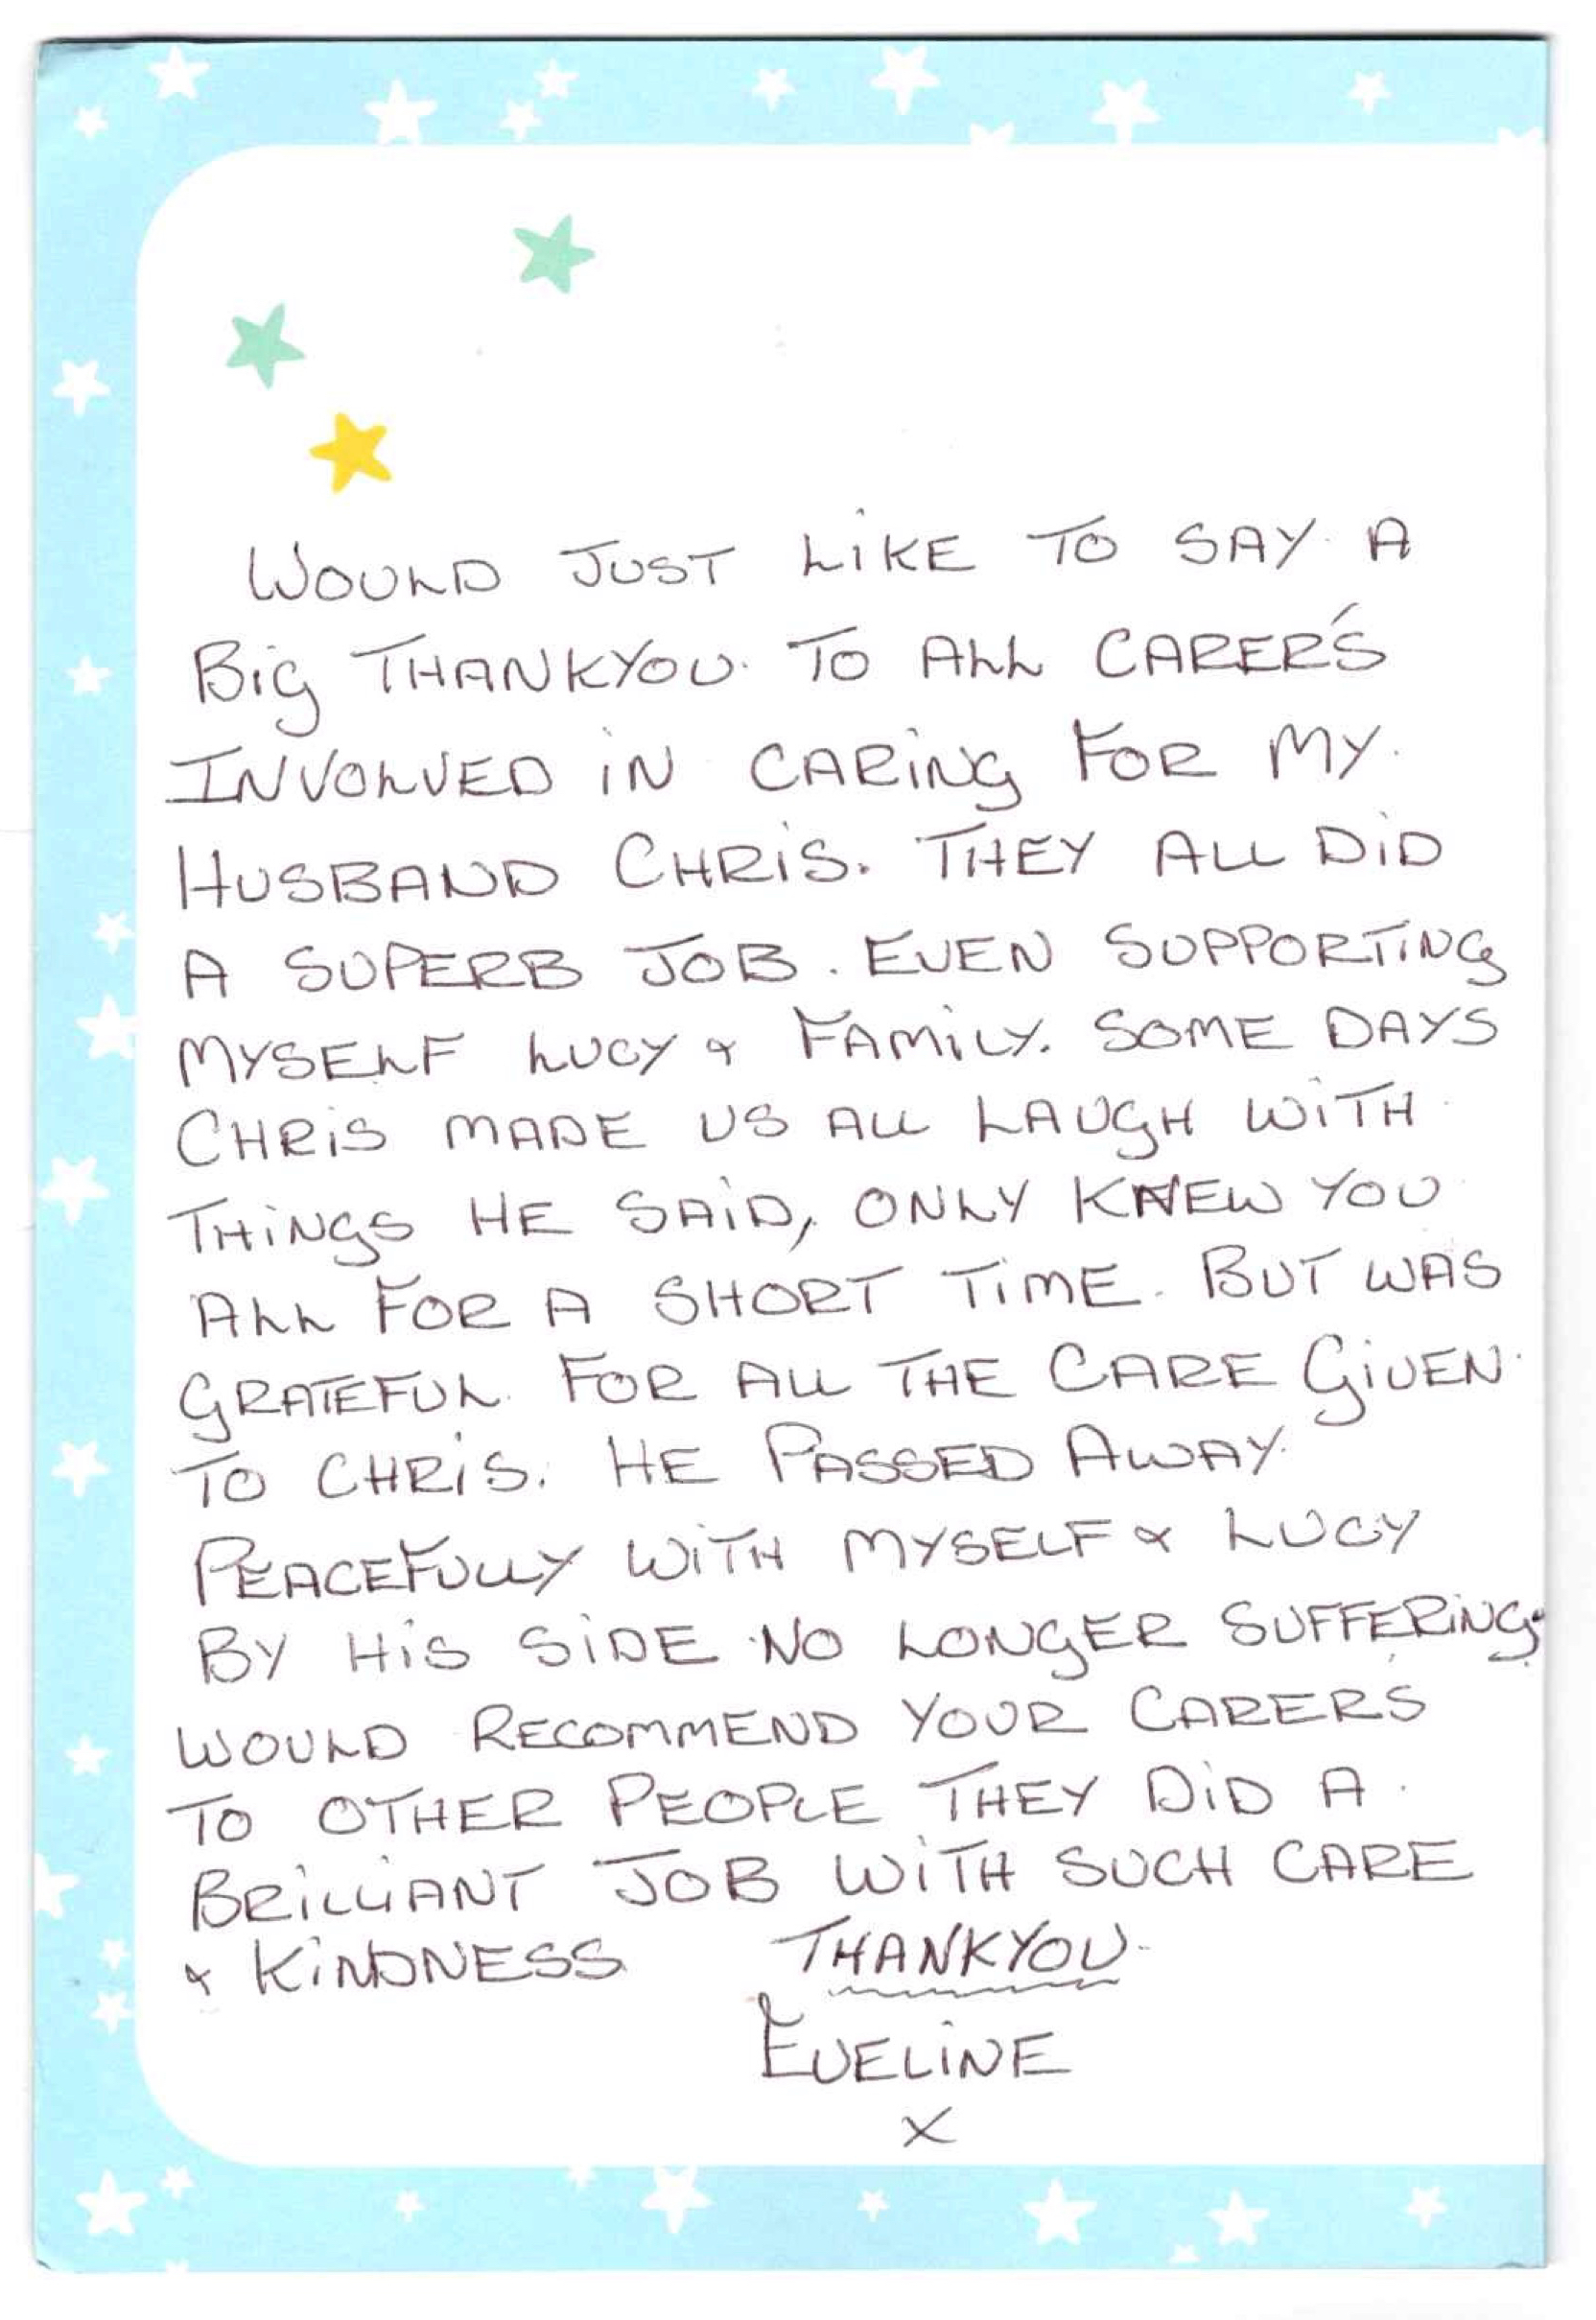 WOULD JUST LIKE TO SAY A
BIG THANKYOU. TO ALL CARER'S
INVOLVED IN CARING FOR MY.
HUSBAND CHRIS. THEY ALL DID
A SUPERB JOB. EVEN SUPPORTING
MYSELF LUCY & FAMILY. SOME DAYS
CHRIS MADE US ALL LAUGH WITH
THINGS HE SAID, ONLY KNEW YOU
ALL FOR A SHORT TIME. BUT WAS
GRATEFUL. FOR ALL THE CARE GIVEN.
TO CHRIS. HE PASSED AWAY.
PEACEFULLY WITH MYSELF & LUCY
BY HIS SIDE NO LONGER SUFFERING.
WOULD RECOMMEND YOUR CARERS
TO OTHER PEOPLE THEY DID A.
BRILLIANT JOB WITH SUCH CARE
& KINDNESS THANKYOU.
EVELINE
X